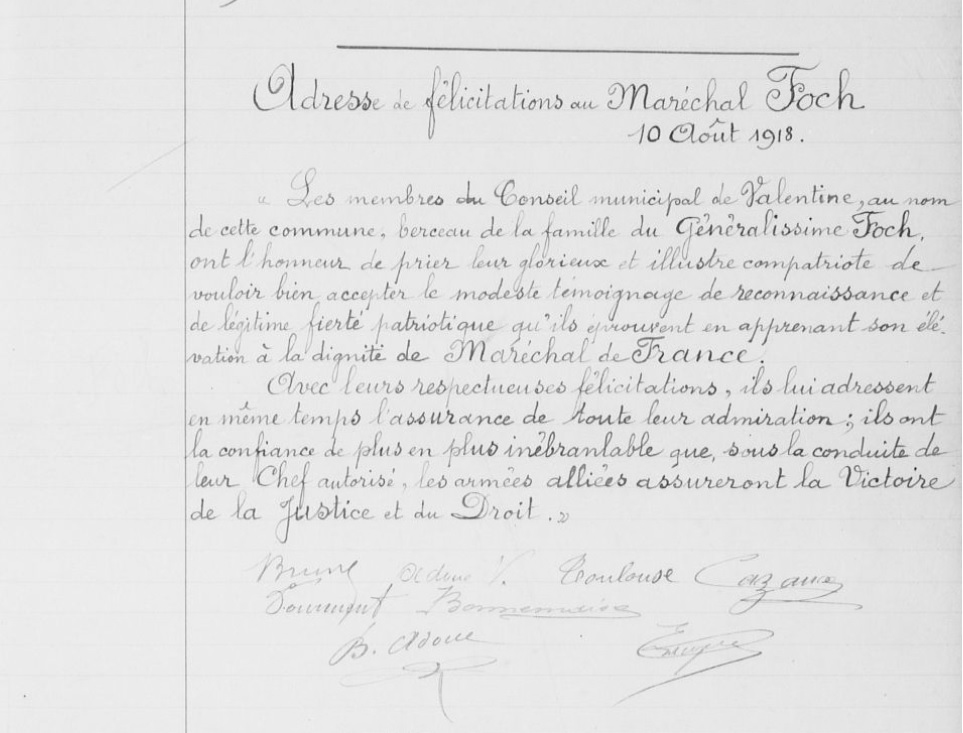 Adresse de félicitations au Maréchal Foch
10 Août 1918.
« Les membres du Conseil municipal de Valentine, au nom
de cette commune, berceau de la famille du Généralissime Foch,
ont l'honneur de prier leur glorieux et illustre compatriote de
vouloir bien accepter le modeste témoignage de reconnaissance et
de légitime fierté patriotique qu'ils éprouvent en apprenant son élé-
vation à la dignité de Maréchal de France.
Avec leurs respectueuses félicitations, ils lui adressent
en même temps l'assurance de toute leur admiration ; ils ont
la confiance de plus en plus inébranlable que, sous la conduite de
leur Chef autorisé, les armées alliées assureront la Victoire
de la Justice et du Droit. »
Brune Adoue Toulouse Cazaux
B. Adoue